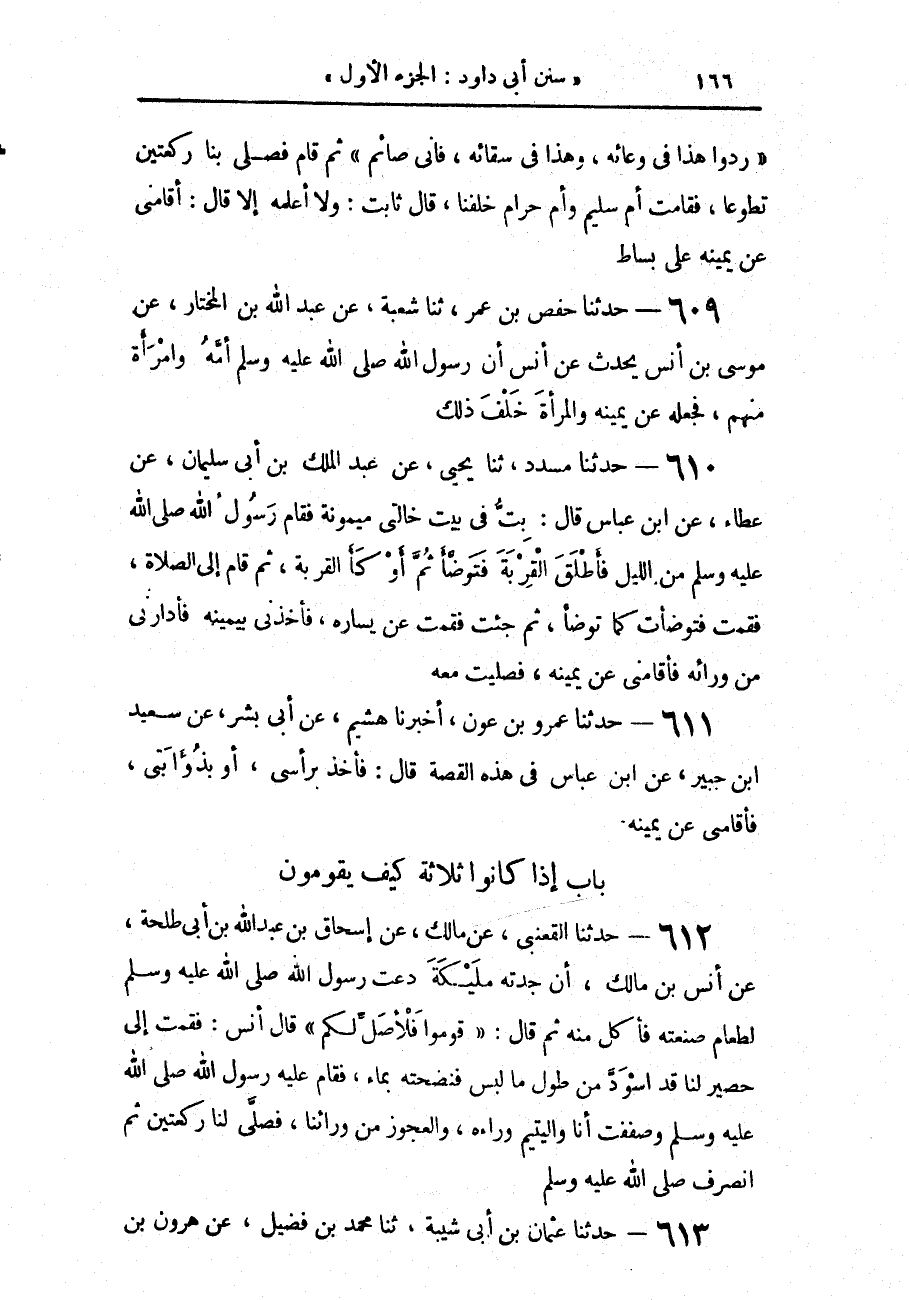 ١٦٦ « سنن أبى داود : الجزء الأول »
« ردوا هذا فى وعائه ، وهذا فى سقائه ، فانى صائم » ثم قام فصلى بنا ركعتين
تطوعا ، فقامت أم سليم وأم حرام خلفنا ، قال ثابت : ولا أعلمه إلا قال : أقامنى
عن يمينه على بساط
٦٠٩ — حدثنا حفص بن عمر ، ثنا شعبة ، عن عبد الله بن المختار ، عن
موسى بن أنس يحدث عن أنس أن رسول الله صلى الله عليه وسلم أمَّهُ وامْرَأَة
منهم ، فجعله عن يمينه والمرأةَ خَلْفَ ذلك
٦١٠ — حدثنا مسدد ، ثنا يحيى ، عن عبد الملك بن أبى سليمان ، عن
عطاء ، عن ابن عباس قال : بِتُّ فى بيت خالتى ميمونة فقام رَسُولُ الله صلى الله
عليه وسلم من الليل فَأَطْلَقَ الْقِرْبَةَ فَتَوَضَّأَ ثُمَّ أَوْكَأَ القربة ، ثم قام إلى الصلاة ،
فقمت فتوضأت كما توضأ ، ثم جئت فقمت عن يساره ، فأخذنى بيمينه فأدارنى
من ورائه فأقامنى عن يمينه ، فصليت معه
٦١١ — حدثنا عمرو بن عون ، أخبرنا هشيم ، عن أبى بشر ، عن سعيد
ابن جبير ، عن ابن عباس فى هذه القصة قال : فأخذ برأسى ، أو بذُؤَابَتِى ،
فأقامنى عن يمينه
باب إذا كانوا ثلاثة كيف يقومون
٦١٢ — حدثنا القعنبى ، عن مالك ، عن إسحاق بن عبد الله بن أبى طلحة ،
عن أنس بن مالك ، أن جدته ملَيْكَةَ دعت رسول الله صلى الله عليه وسلم
لطعام صنعته فأكل منه ثم قال : « قوموا فَلْأُصَلِّ لكم » قال أنس : فقمت إلى
حصير لنا قد اسْوَدَّ من طول ما لبس فنضحته بماء ، فقام عليه رسول الله صلى الله
عليه وسلم وصففت أنا واليتيم وراءه ، والعجوز من ورائنا ، فصلَّى لنا ركعتين ثم
انصرف صلى الله عليه وسلم
٦١٣ — حدثنا عثمان بن أبى شيبة ، ثنا محمد بن فضيل ، عن هرون بن